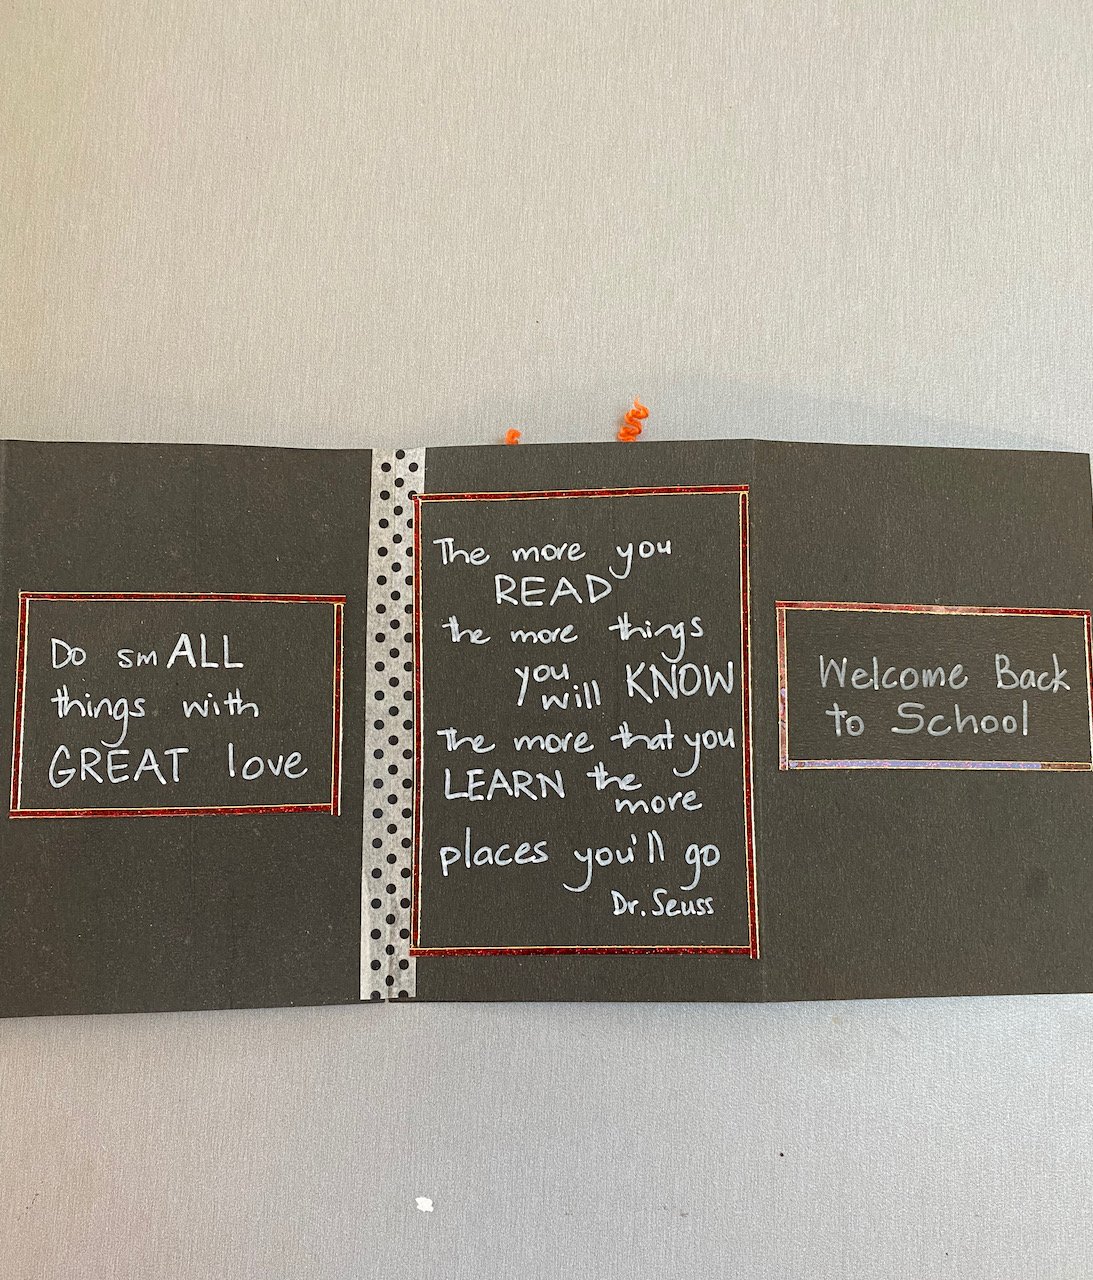 Do smALL
things with
GREAT love
The more you
READ
the more things
you
will KNOW
The more that you
LEARN the
more
places you'll go
Dr. Seuss
Welcome Back
to School